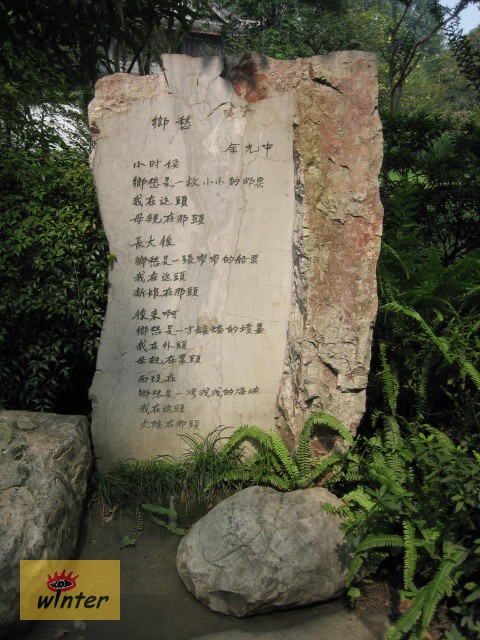 鄉愁
余光中
小时候
鄉愁是一枚小小的邮票
我在这頭
母親在那頭
長大後
鄉愁是一張窄窄的船票
我在这頭
新娘在那頭
後来啊
鄉愁是一方矮矮的墳墓
我在外頭
母親在裏頭
而現在
鄉愁是一湾浅浅的海峡
我在这頭
大陸在那頭
winter